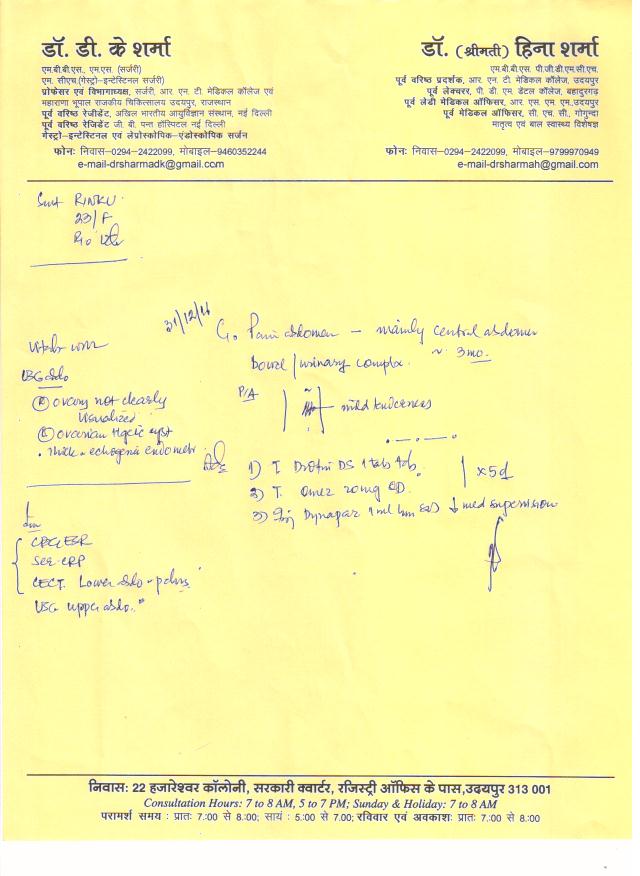 डॉ. डी. के शर्मा
एम.बी.बी.एस., एम.एस (सर्जरी)
एम. सीएच.(गेस्ट्रो-इन्टेस्टिनल सर्जरी)
प्रोफेसर एवं विभागाध्यक्ष, सर्जरी, आर. एन. टी. मेडिकल कॉलेज एवं
महाराणा भूपाल राजकीय चिकित्सालय उदयपुर, राजस्थान
पूर्व वरिष्ठ रेजीडेंट, अखिल भारतीय आयुर्विज्ञान संस्थान, नई दिल्ली
पूर्व वरिष्ठ रेजिडेंट जी. बी. पन्त हॉस्पिटल नई दिल्ली
गेस्ट्रो-इन्टेस्टिनल एवं लेप्रोस्कोपिक-एंडोस्कोपिक सर्जन
फोनः निवास-0294-2422099, मोबाइल-9460352244
e-mail-drsharmadk@gmail.com
डॉ. (श्रीमती) हिना शर्मा
एम.बी.बी.एस. पी.जी.डी.एम.सी.एच.
पूर्व वरिष्ठ प्रदर्शक, आर. एन. टी. मेडिकल कॉलेज, उदयपुर
पूर्व लेक्चरर, पी. डी. एम. डेंटल कॉलेज, बहादुरगढ़
पूर्व लेडी मेडिकल ऑफिसर, आर. एस. एम. एम.,उदयपुर
पूर्व मेडिकल ऑफिसर, सी. एच. सी., गोगुन्दा
मातृत्व एवं बाल स्वास्थ्य विशेषज्ञ
फोनः निवास-0294-2422099, मोबाइल-9799970949
e-mail-drsharmah@gmail.com
Smt RINKU
23/F
31/12/16
C/o Pain abdomen - mainly central abdomen
~ 3 mo.
bowel/urinary
P/A
mild tenderness
USG abdo
(R) ovary not clearly
visualized
ovarian cyst
thick echogenic
1) T. Drotin DS 1 tab
2) T. Omez 20mg OD
x 5d
3) Inj Dynapar 1 ml ↓ med supervision
CBC, ESR
Ser. CRP
CECT. Lower abdo - pelvis
USG upper abdo.
निवासः 22 हजारेश्वर कॉलोनी, सरकारी क्वार्टर, रजिस्ट्री ऑफिस के पास,उदयपुर 313 001
Consultation Hours: 7 to 8 AM, 5 to 7 PM; Sunday & Holiday: 7 to 8 AM
परामर्श समय : प्रातः 7.:00 से 8.:00; सायं : 5:00 से 7.00; रविवार एवं अवकाशः प्रातः 7.:00 से 8.:00